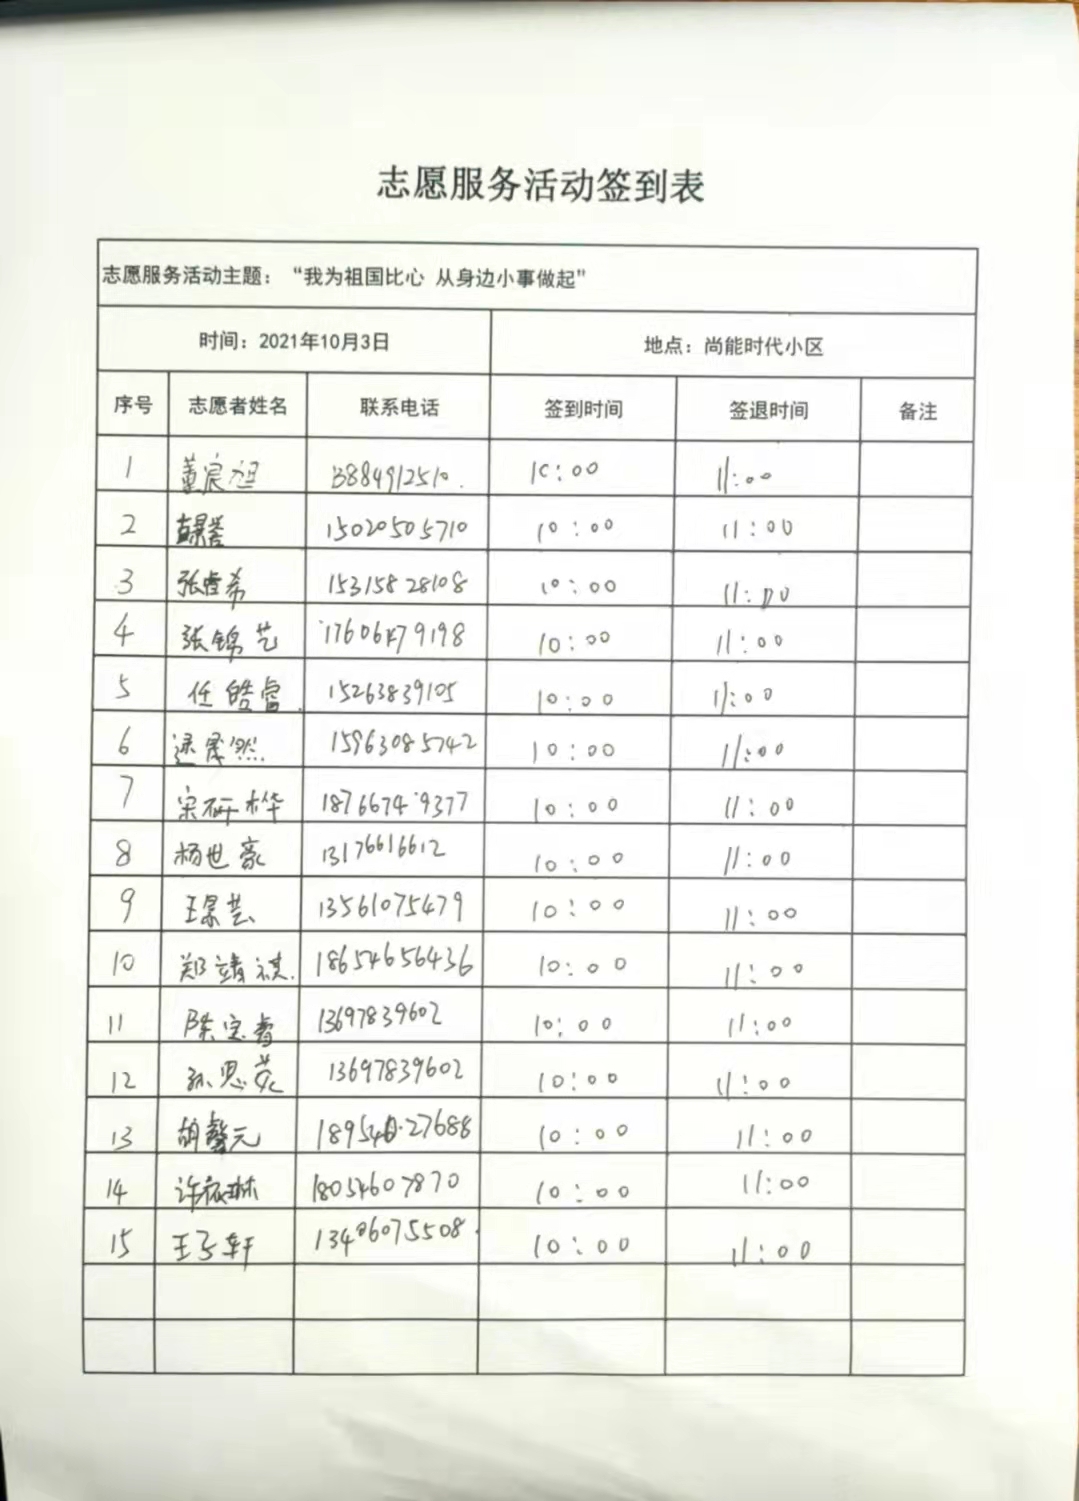 志愿服务活动签到表
志愿服务活动主题：“我为祖国比心 从身边小事做起”
时间：2021年10月3日 地点：尚能时代小区
序号 志愿者姓名 联系电话 签到时间 签退时间 备注
1 董宸旭 13884912510. 10:00 11:00
2 15020505710 10:00 11:00
3 张睿希 15315828108 10:00 11:00
4 张锦艺 17606479198 10:00 11:00
5 任皓睿. 15263839105 10:00 11:00
6 15963085742 10:00 11:00
7 宋研桦 18766749377 10:00 11:00
8 杨世豪 13176616612 10:00 11:00
9 王景芸 13561075479 10:00 11:00
10 郑靖祺. 18654656436 10:00 11:00
11 陈宝睿 13697839602 10:00 11:00
12 孙思茓 13697839602 10:00 11:00
13 胡馨元 10:00 11:00
14 18054607870 10:00 11:00
15 王子轩 13406075508. 10:00 11:00